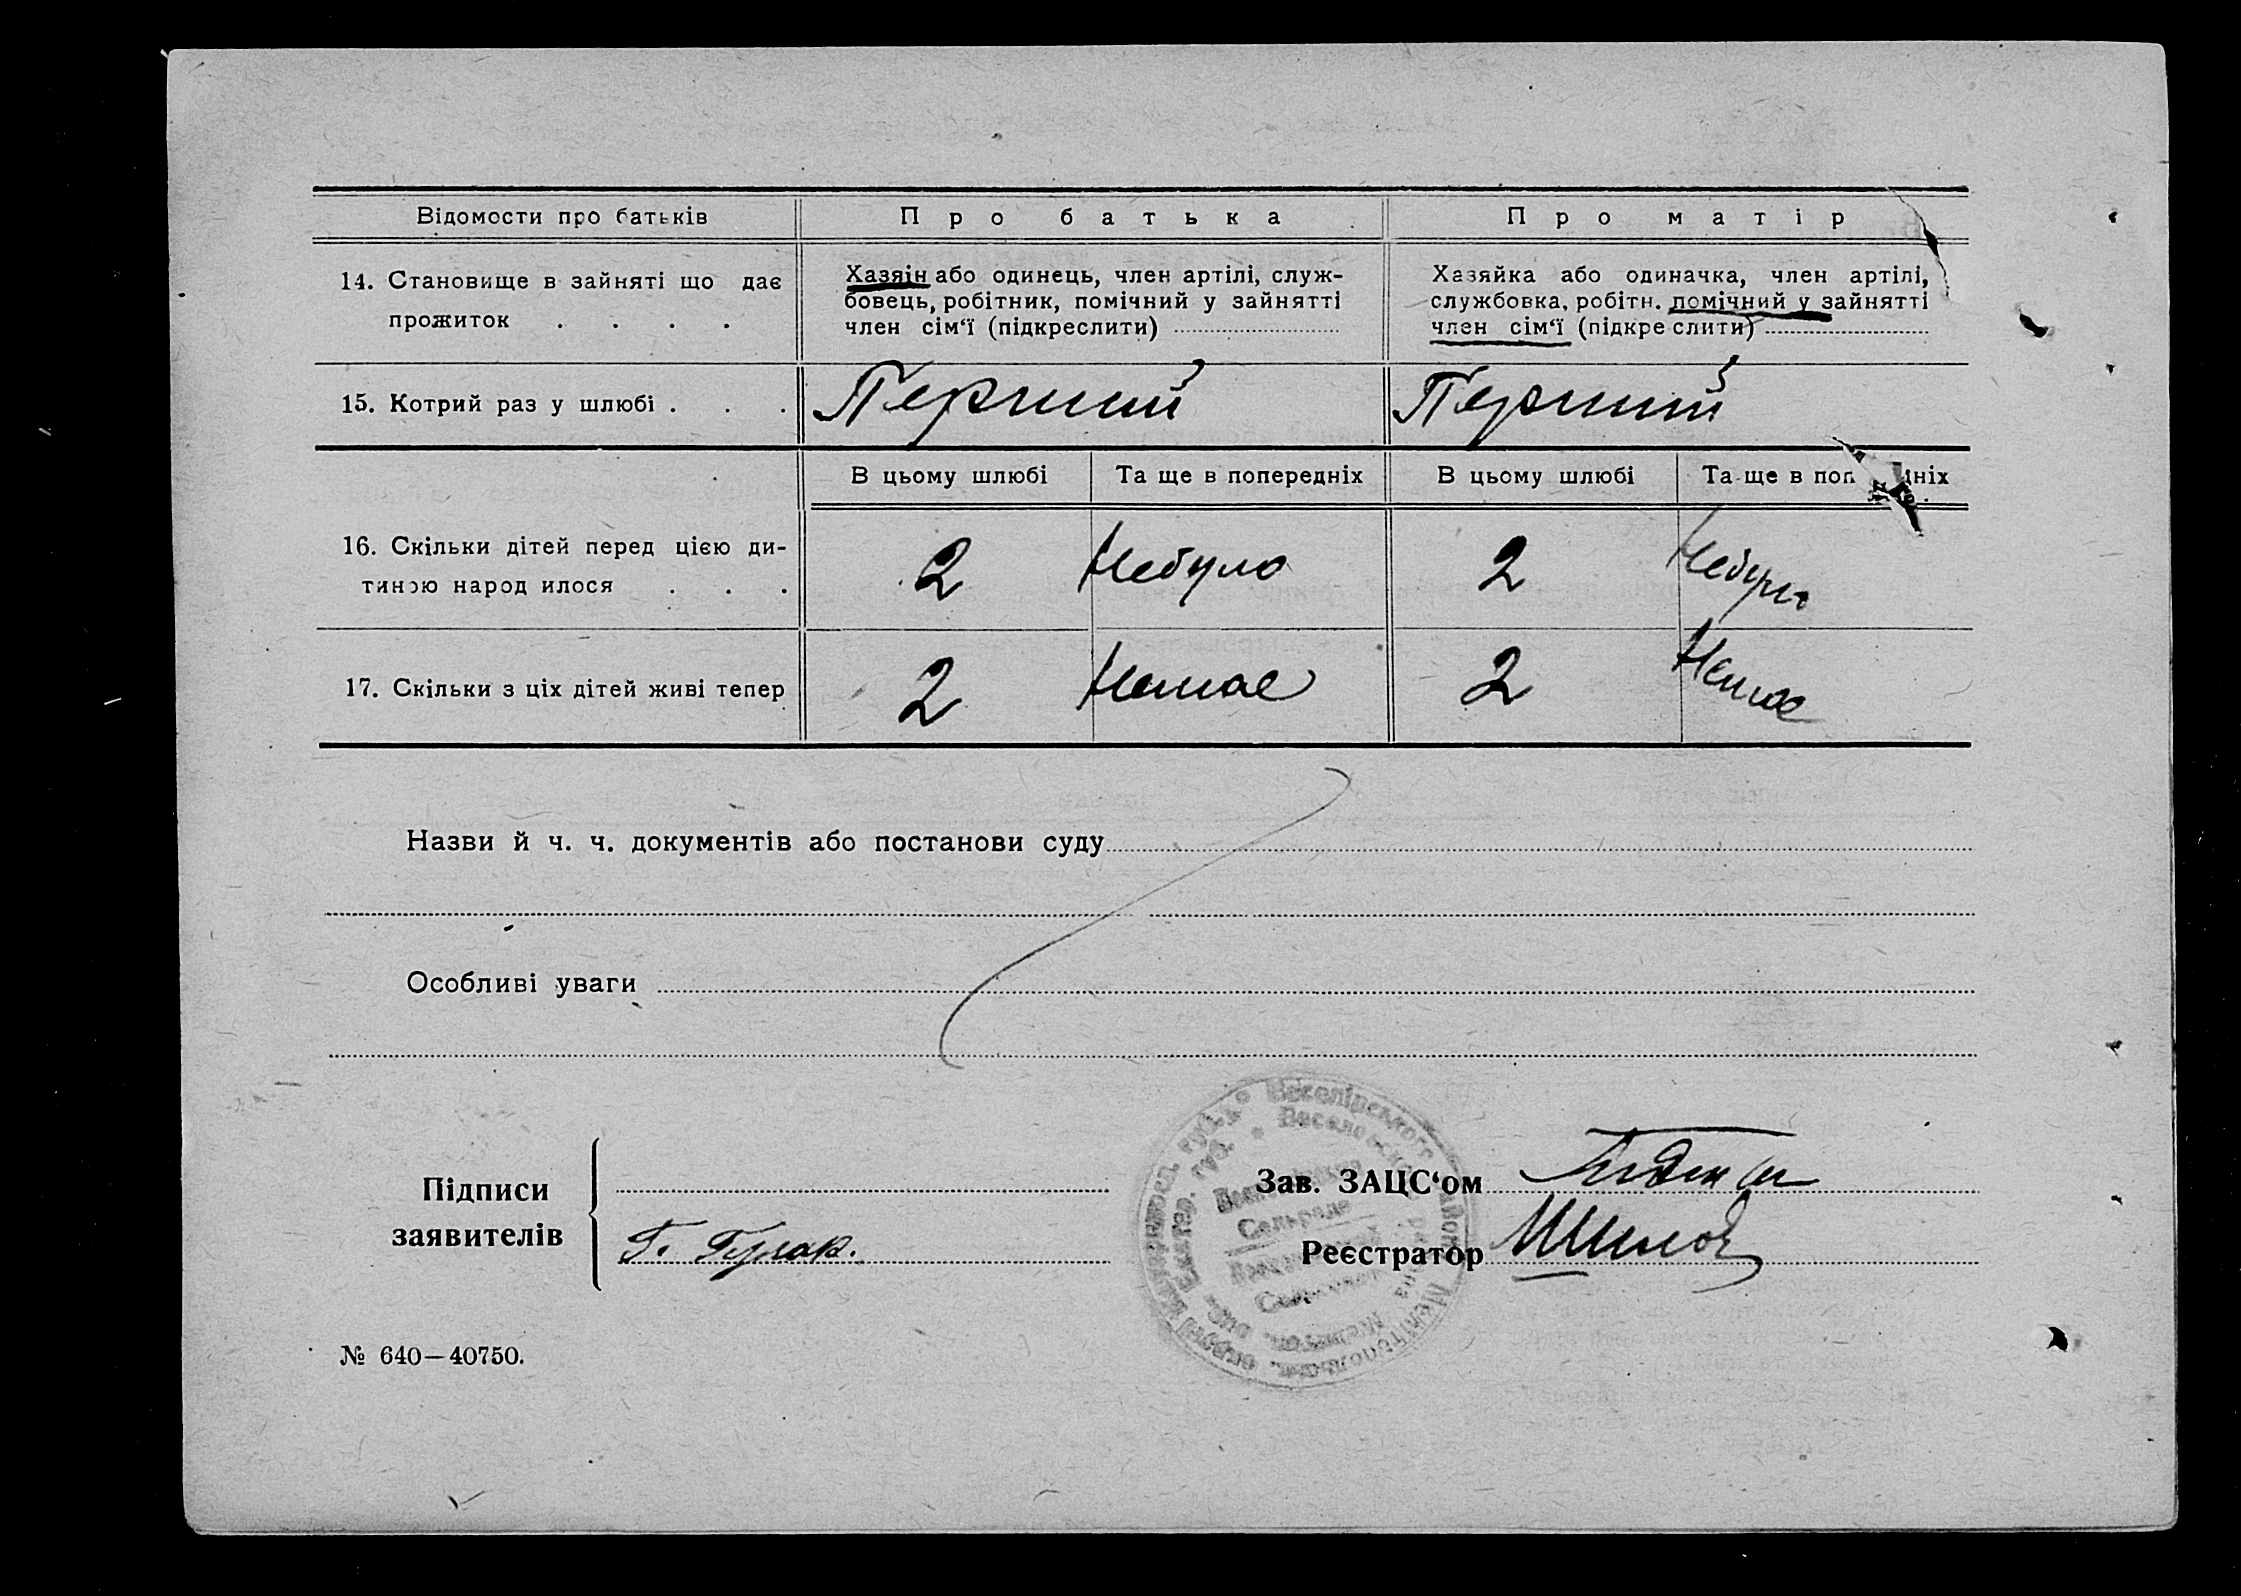 Відомости про батьків Про батька Про матір
14. Становище в зайняті що дає
прожиток . . . .
Хазяін або одинець, член артілі, служ-
бовець, робітник, помічний у зайнятті
член сім‘ї (підкреслити)
Хазяйка або одиначка, член артілі,
службовка, робітн. помічний у зайнятті
член сім‘ї (підкре слити)
15. Котрий раз у шлюбі . . . Перший Перший
В цьому шлюбі Та ще в попередніх В цьому шлюбі Та ще в поп ніх
16. Скільки дітей перед цією ди-
тиною народ илося . . .
2 Небуло 2 Небуло
17. Скільки з ціх дітей живі тепер 2 Немає 2 Немає
Назви й ч. ч. документів або постанови суду
Особливі уваги
Підписи
заявителів
Г. Гулак.
Зав. ЗАЦС‘ом
Реєстратор
Сельрада
№ 640—40750.